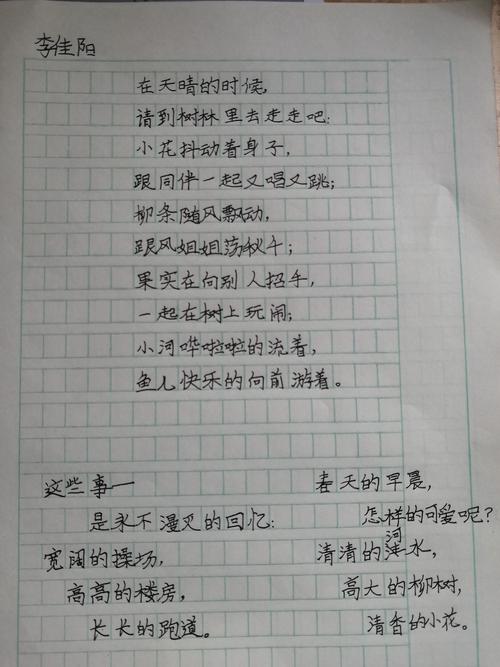 李佳阳
在天晴的时候,
请到树林里去走走吧:
小花抖动着身子,
跟同伴一起又唱又跳;
柳条随风飘动,
跟风姐姐荡秋千;
果实在向别人招手,
一起在树上玩闹;
小河哗啦啦的流着,
鱼儿快乐的向前游着。
这些事一
是永不漫灭的回忆:
宽阔的操场,
高高的楼房,
长长的跑道。
春天的早晨,
怎样的可爱呢?
清清的河水,
高大的柳树,
清香的小花。